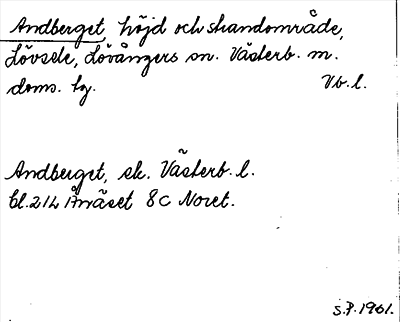 Andberget, höjd och strandområde,
Lövsele, Lövångers sn. Västerb. m.
doms. tg. Vb. l.
Andberget, sk. Västerb. l.
bl. 21L Ånäset 8c Noret.
S.P. 1961.